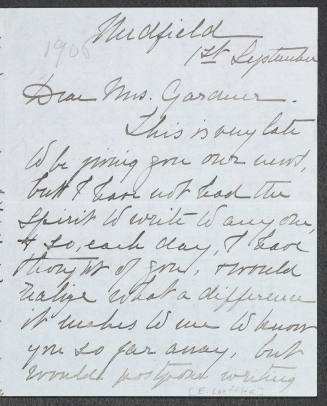 1906
Medfield
1st September
Dear Mrs. Gardner.
This is very late
to be giving you our news,
but I have not had the
spirit to write to anyone,
& so, each day, I have
thought of you, & would
realize what a difference
it makes to me to know
you so far away, but
would postpone writing